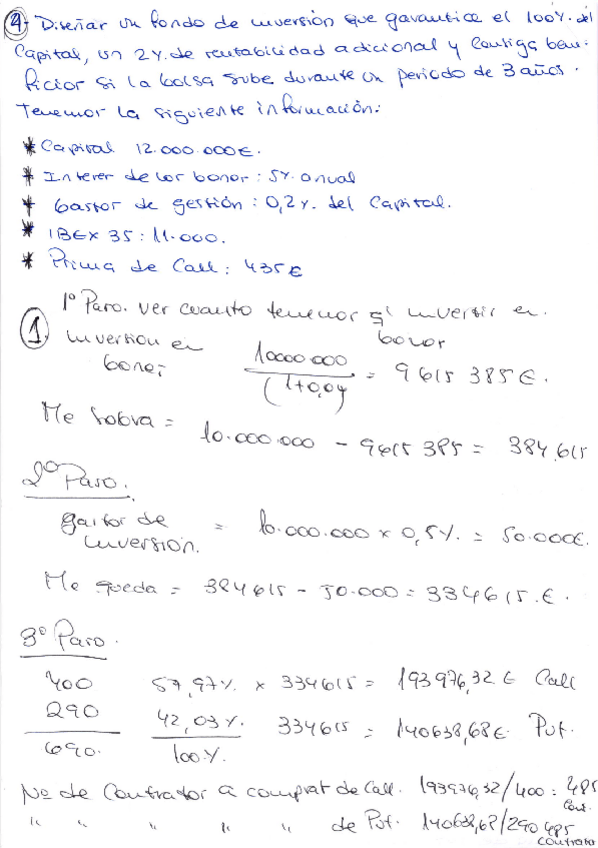 4) Diseñar un fondo de inversión que garantice el 100% del
Capital, un 2% de rentabilidad adicional y contiga bene
ficios si la bolsa sube durante un periodo de 3 años.
Tenemos la siguiente información:
* Capital 12.000.000€.
* Interes de los bonos: 5% anual
* Gastos de gestión: 0,2% del Capital.
* IBEX 35: 11.000.
* Prima de Call: 435€
1º Paso. ver cuanto tenemos q' invertir en
bonos
1 Inversion en
bonos
10000 000 / (1+0,04) = 9615 385€.
Me sobra = 10.000.000 - 9615 385 = 384,615
2º Paso.
gastos de
inversion. = 10.000.000 x 0,5% = 50.000€.
Me queda = 384615 - 50.000 = 334615.€.
3º Paso.
400 57,97% x 334615 = 193976,32€ Call
290 42,03% 334615 = 140638,68€ Put.
690. 100%
Nº de Contratos a comprar de Call. 193976,32/400 = 485
cont.
" " " " " de Put. 140638,68/290 485
contratos